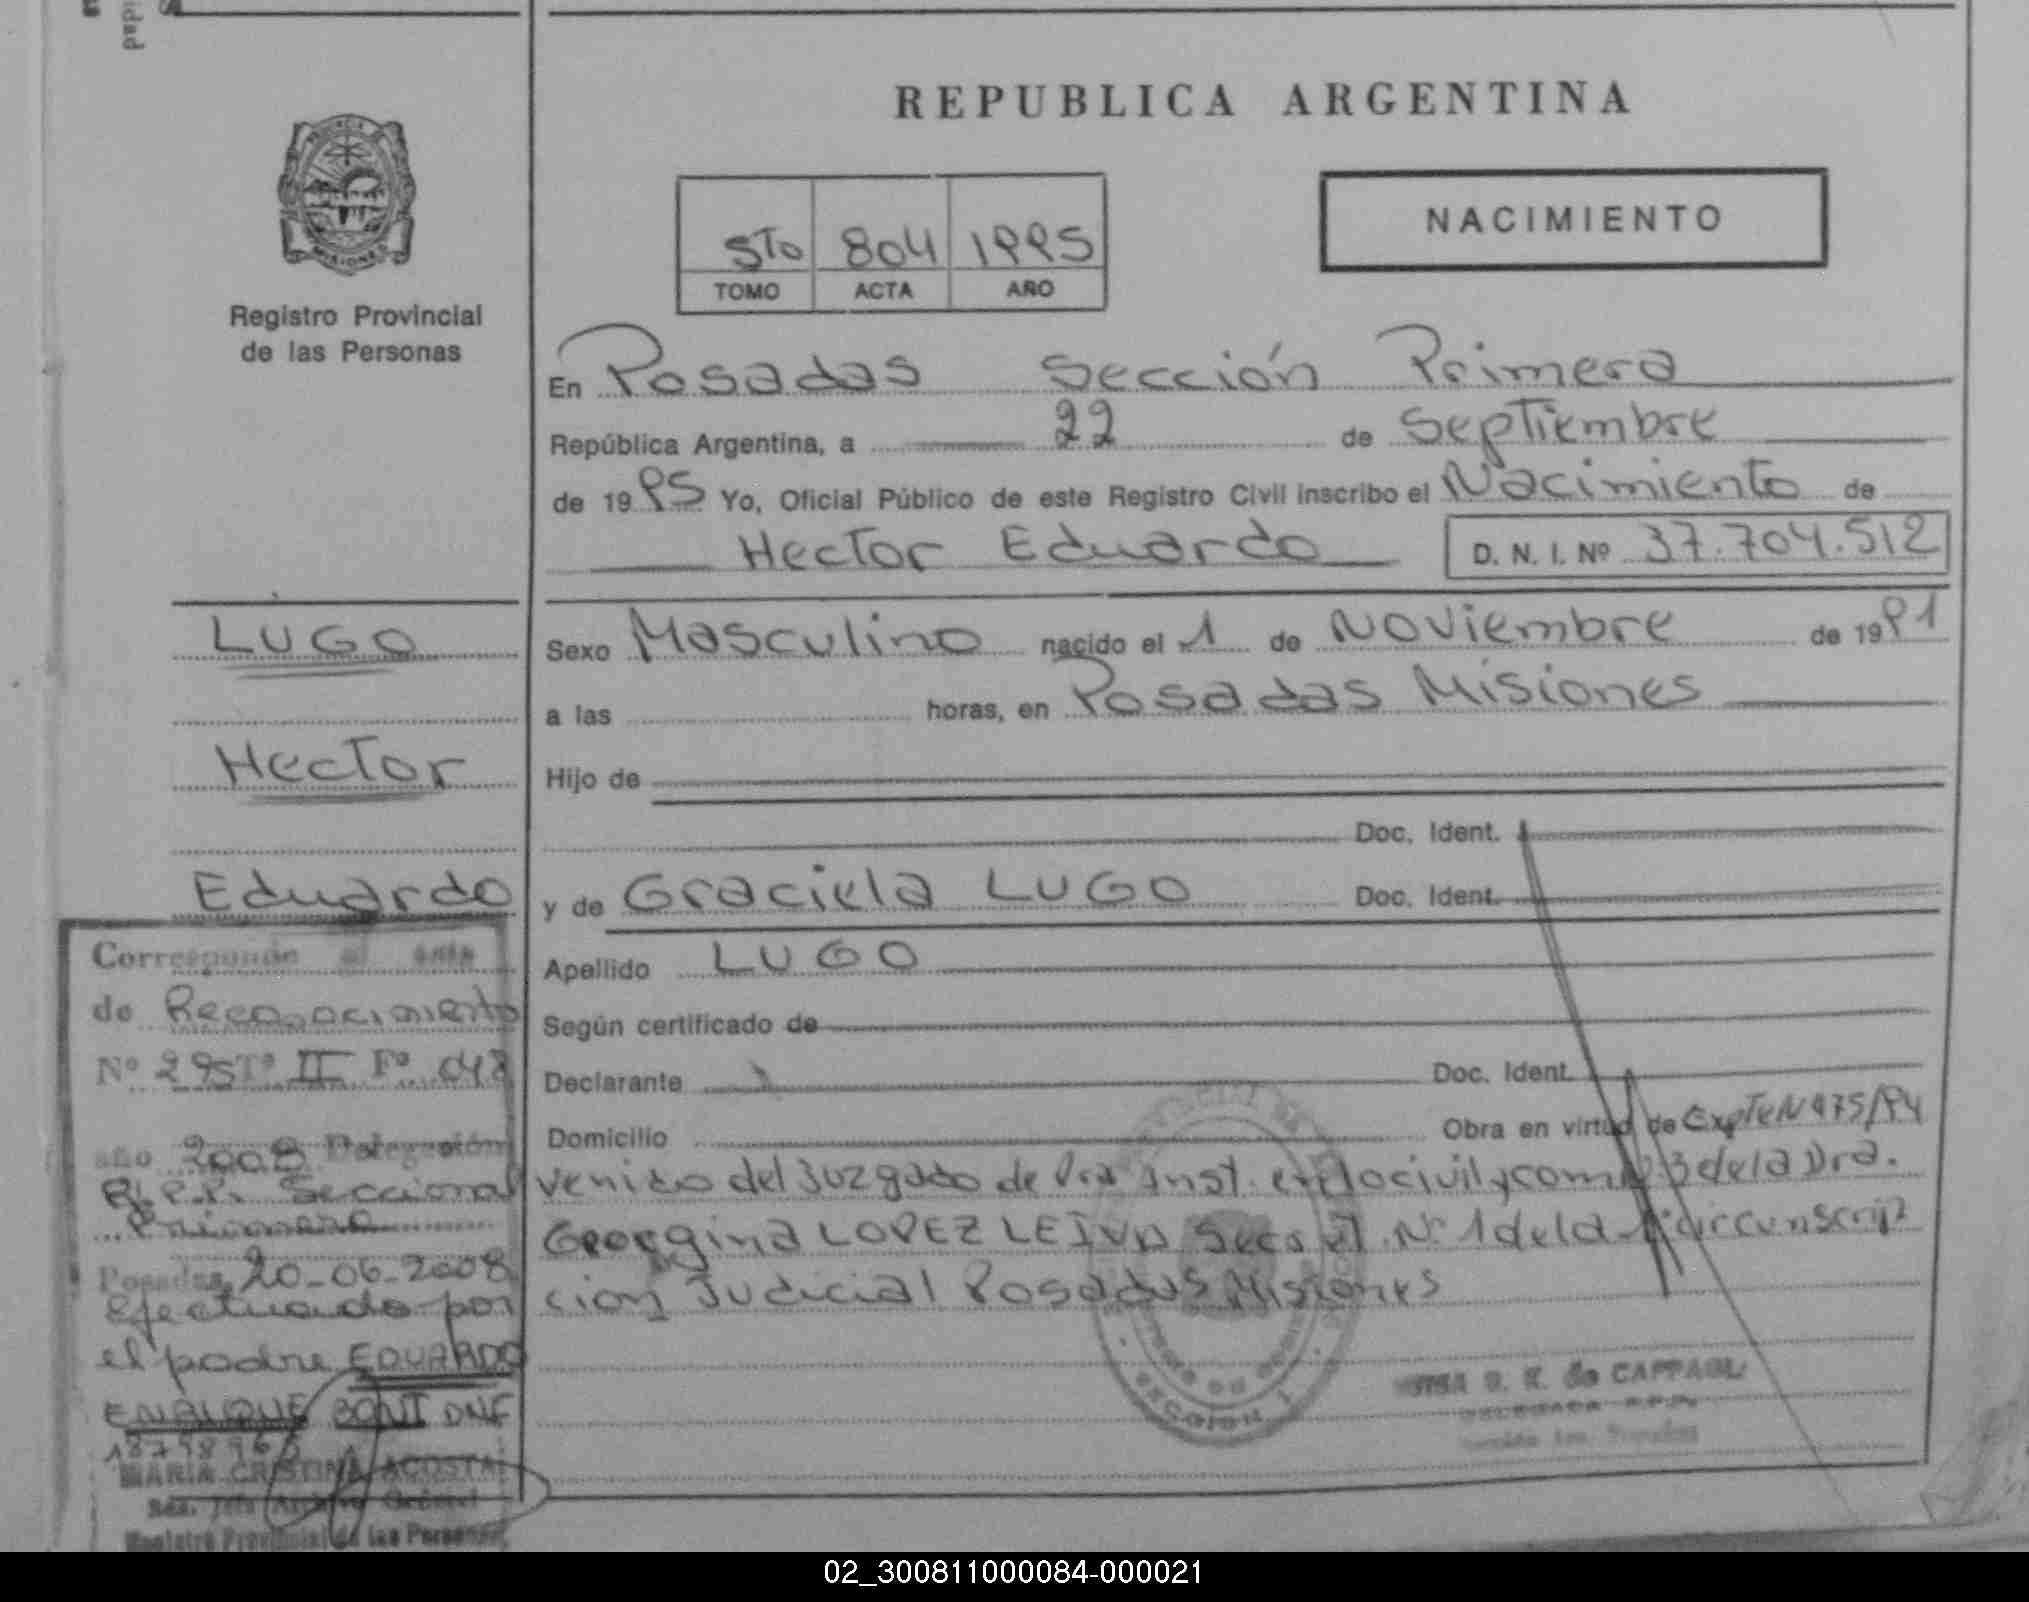 idad
REPUBLICA ARGENTINA
PROVINCIA DE
MISIONES
Registro Provincial
de las Personas
5To 804 1995
TOMO ACTA AÑO
NACIMIENTO
En Posadas Sección Primera
República Argentina, a 22 de Septiembre
de 1995 Yo, Oficial Público de este Registro Civil inscribo el Nacimiento de
Hector Eduardo D. N. I. Nº 37.704.512
LUGO
Hector
Eduardo
Sexo Masculino nacido el 1 de Noviembre de 1991
a las horas, en Posadas Misiones
Hijo de
Doc. Ident.
y de Graciela LUGO Doc. Ident.
Apellido LUGO
Según certificado de
Declarante Doc. Ident.
Domicilio Obra en virtud de ExpTe N 975/94
venido del Juzgado de Pra Inst. en lo civil y com Nº 3 de la Dra.
Georgina LOPEZ LEIVA Secret. Nº 1 de la 1ª circunscrip
cion Judicial Posadas Misiones
Corresponde al acta
de Reconocimiento
Nº 295 Tº II Fº 048
año 2008 Delegación
R.P.P. Seccional
Primera
Posadas, 20-06-2008
efectuado por
el padre EDUARDO
ENRIQUE BONI DNI
MARIA CRISTINA ACOSTA
Jefe Archivo General
Registro Provincial de las Personas
de CAPPAGLI
02_300811000084-000021